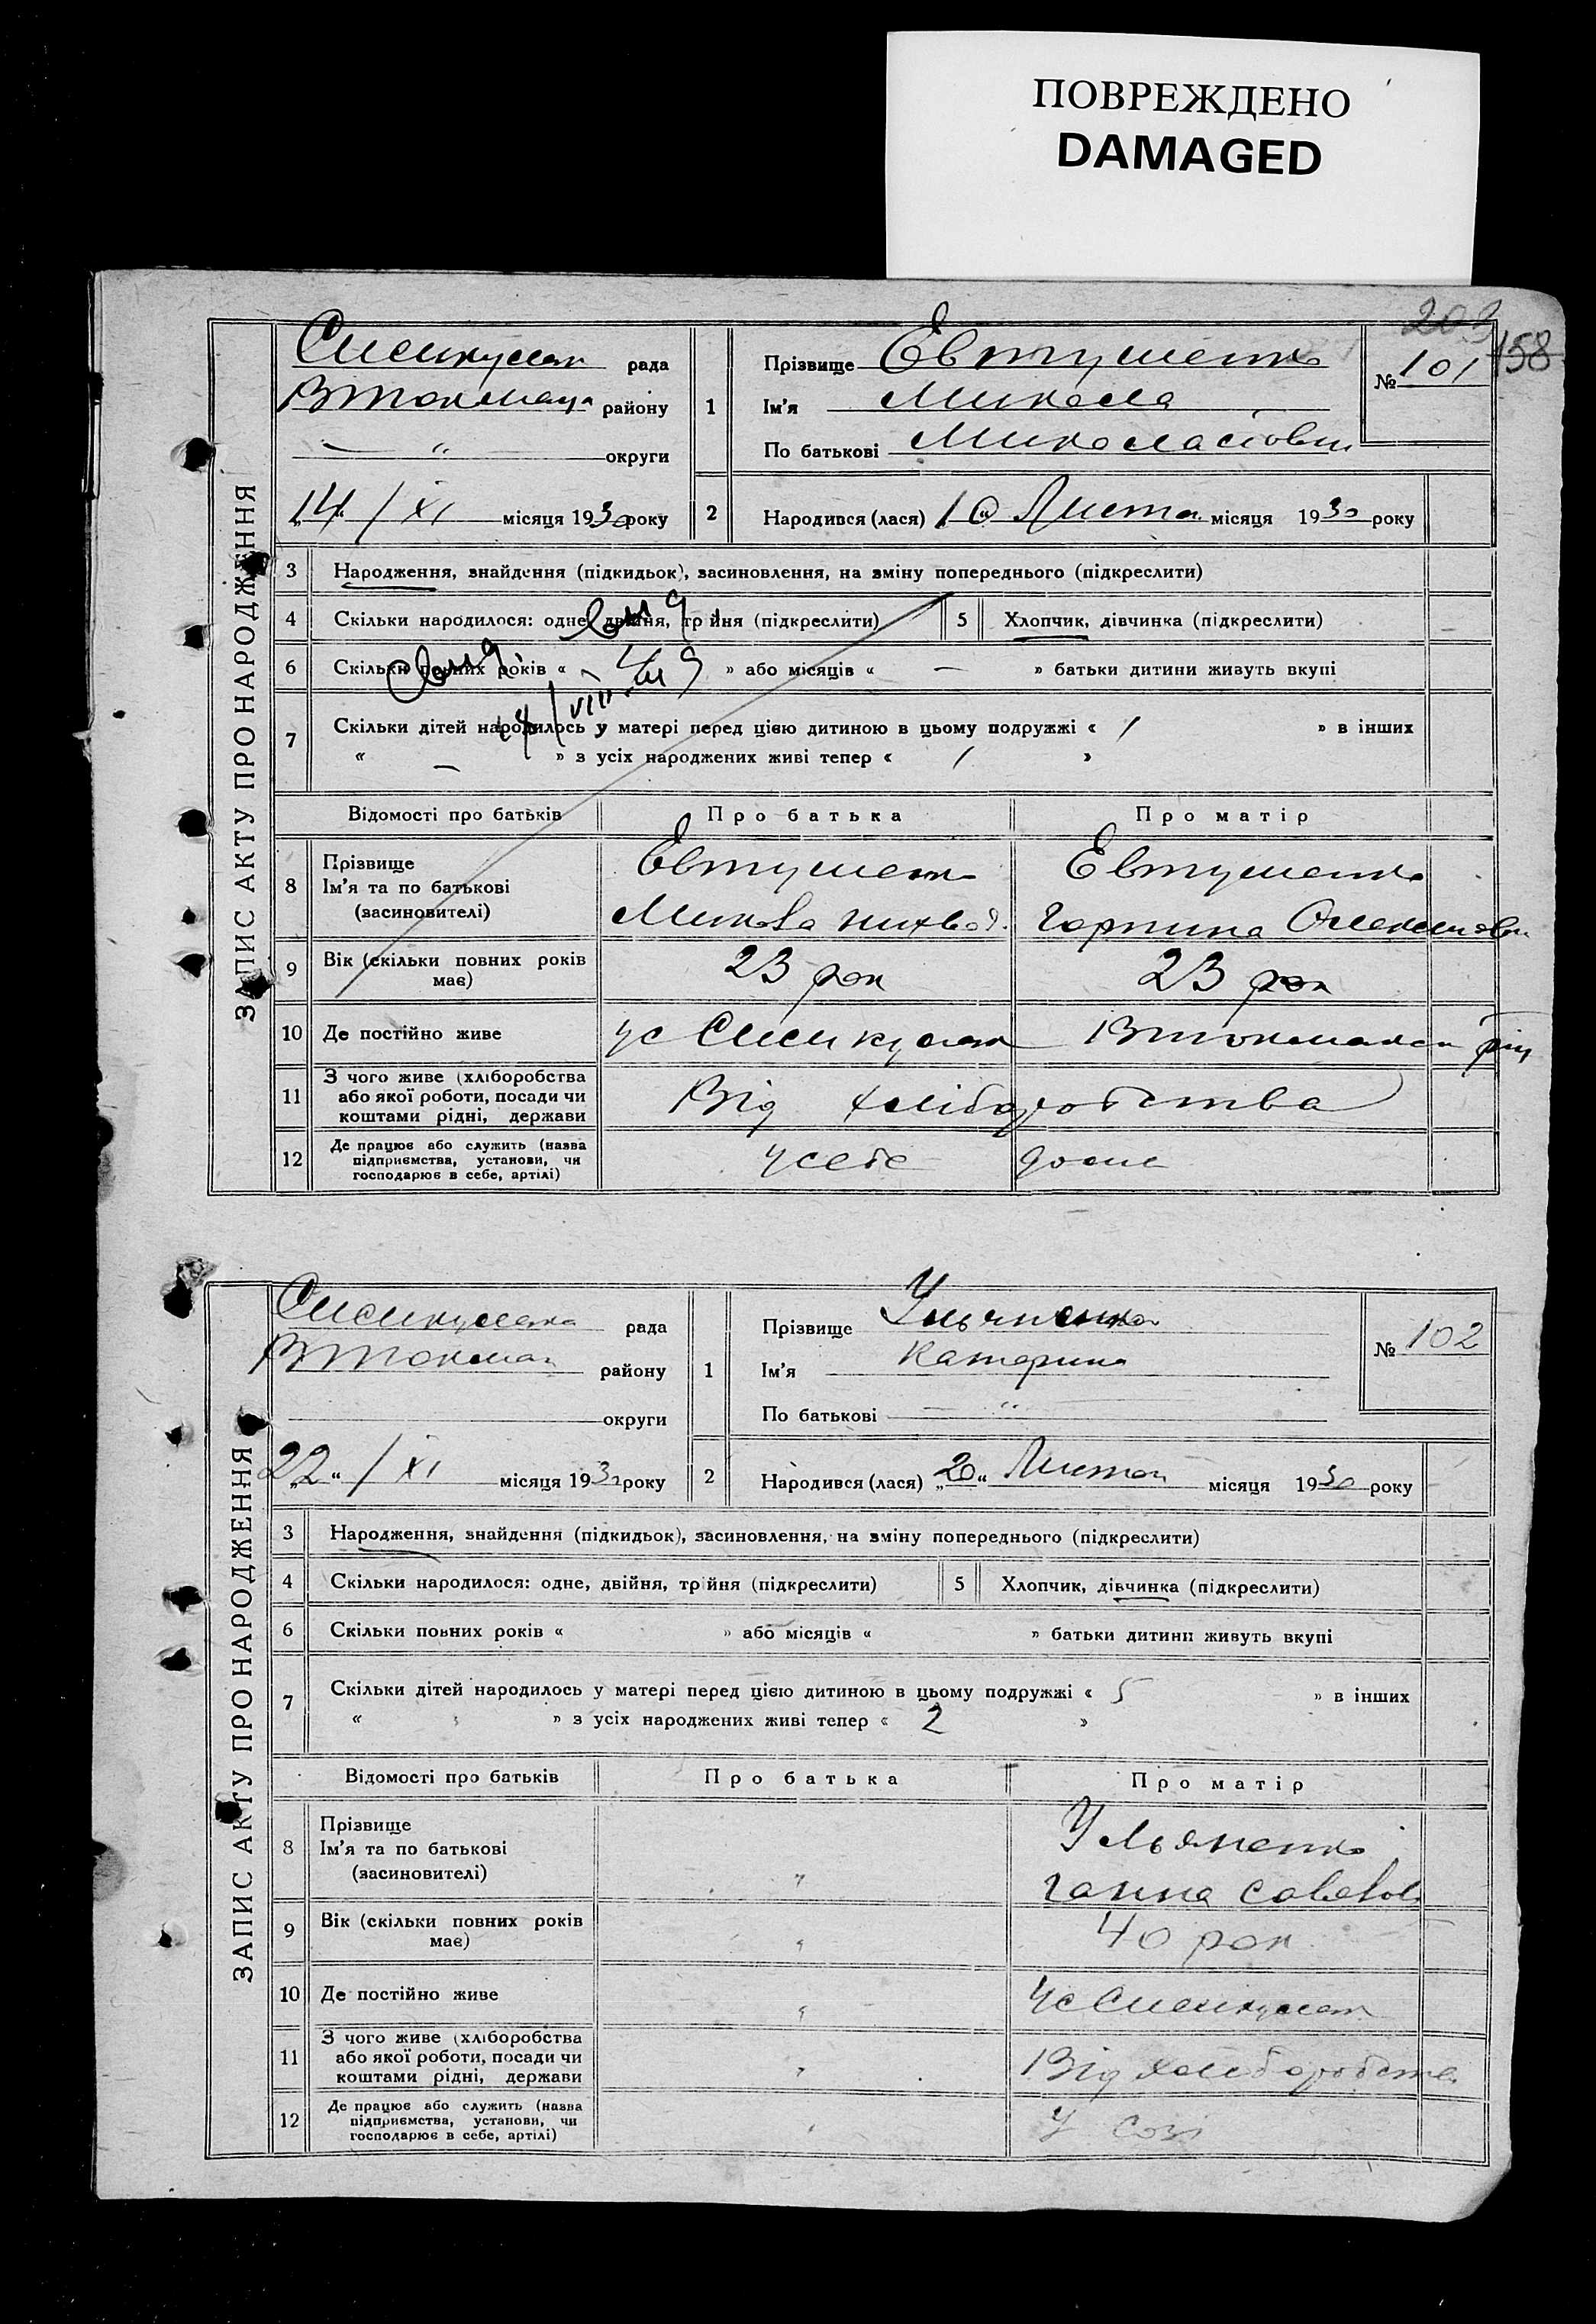 ПОВРЕЖДЕНО
DAMAGED
203
158
ЗАПИС АКТУ ПРО НАРОДЖЕННЯ
рада
району
округи
„14“ / XI місяця 1930 року
1
Прізвище Евтушенко
Ім'я Микола
По батькові Миколайович
№ 101
2
Народився (лася) „10“ Листоп місяця 1930 року
3 Народження, знайдення (підкидьок), засиновлення, на зміну попереднього (підкреслити)
4 Скільки народилося: одне, двійня, трійня (підкреслити)
5 Хлопчик, дівчинка (підкреслити)
6 Скільки повних років « » або місяців « — » батьки дитини живуть вкупі
7 Скільки дітей народилось у матері перед цією дитиною в цьому подружжі « 1 » в інших
« — » з усіх народжених живі тепер « 1 »
Відомості про батьків
Про батька
Про матір
8 Прізвище
Ім'я та по батькові
(засиновителі)
Евтушенко
Микола
Евтушенко
Горпина
9 Вік (скільки повних років
має)
23 рок
23 рок
10 Де постійно живе
ус
11 З чого живе (хліборобства
або якої роботи, посади чи
коштами рідні, держави
Від хліборобства
12 Де працює або служить (назва
підприємства, установи, чи
господарює в себе, артілі)
у себе дома
ЗАПИС АКТУ ПРО НАРОДЖЕННЯ
рада
району
округи
„22“ / XI місяця 1930 року
1
Прізвище Ульяненко
Ім'я Катерина
По батькові — “
№ 102
2
Народився (лася) „20“ Листоп місяця 1930 року
3 Народження, знайдення (підкидьок), засиновлення, на зміну попереднього (підкреслити)
4 Скільки народилося: одне, двійня, трійня (підкреслити)
5 Хлопчик, дівчинка (підкреслити)
6 Скільки повних років « » або місяців « » батьки дитини живуть вкупі
7 Скільки дітей народилось у матері перед цією дитиною в цьому подружжі « 5 » в інших
« » з усіх народжених живі тепер « 2 »
Відомості про батьків
Про батька
Про матір
8 Прізвище
Ім'я та по батькові
(засиновителі)
Ульяненко
Ганна
9 Вік (скільки повних років
має)
40 рок
10 Де постійно живе
ус
11 З чого живе (хліборобства
або якої роботи, посади чи
коштами рідні, держави
Від хліборобства
12 Де працює або служить (назва
підприємства, установи, чи
господарює в себе, артілі)
У Созі